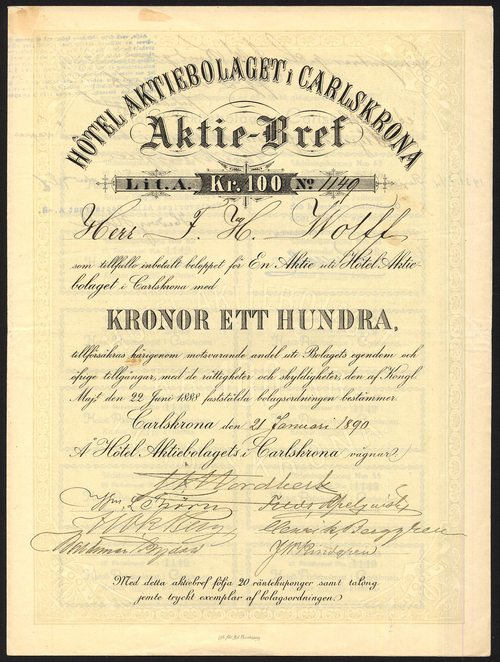 HÔTEL AKTIEBOLAGET i CARLSKRONA
Aktie-Bref
Lit. A. Kr. 100 No 1149
Herr F. H. Wolff
som tillfullo inbetalt beloppet för En Aktie uti Hôtel Aktie-
bolaget i Carlskrona med
KRONOR ETT HUNDRA,
tillförsäkras härigenom motsvarande andel uti Bolagets egendom och
öfriga tillgångar, med de rättigheter och skyldigheter, den af Kongl.
Maj:t den 22 Juni 1888 fastställda bolagsordningen bestämmer.
Carlskrona den 21 Januari 1890
Å Hôtel Aktiebolagets i Carlskrona vägnar:
Nordbeck
Henrik Berggren
Med detta aktiebref följa 20 räntekuponger samt talong
jemte tryckt exemplar af bolagsordningen.